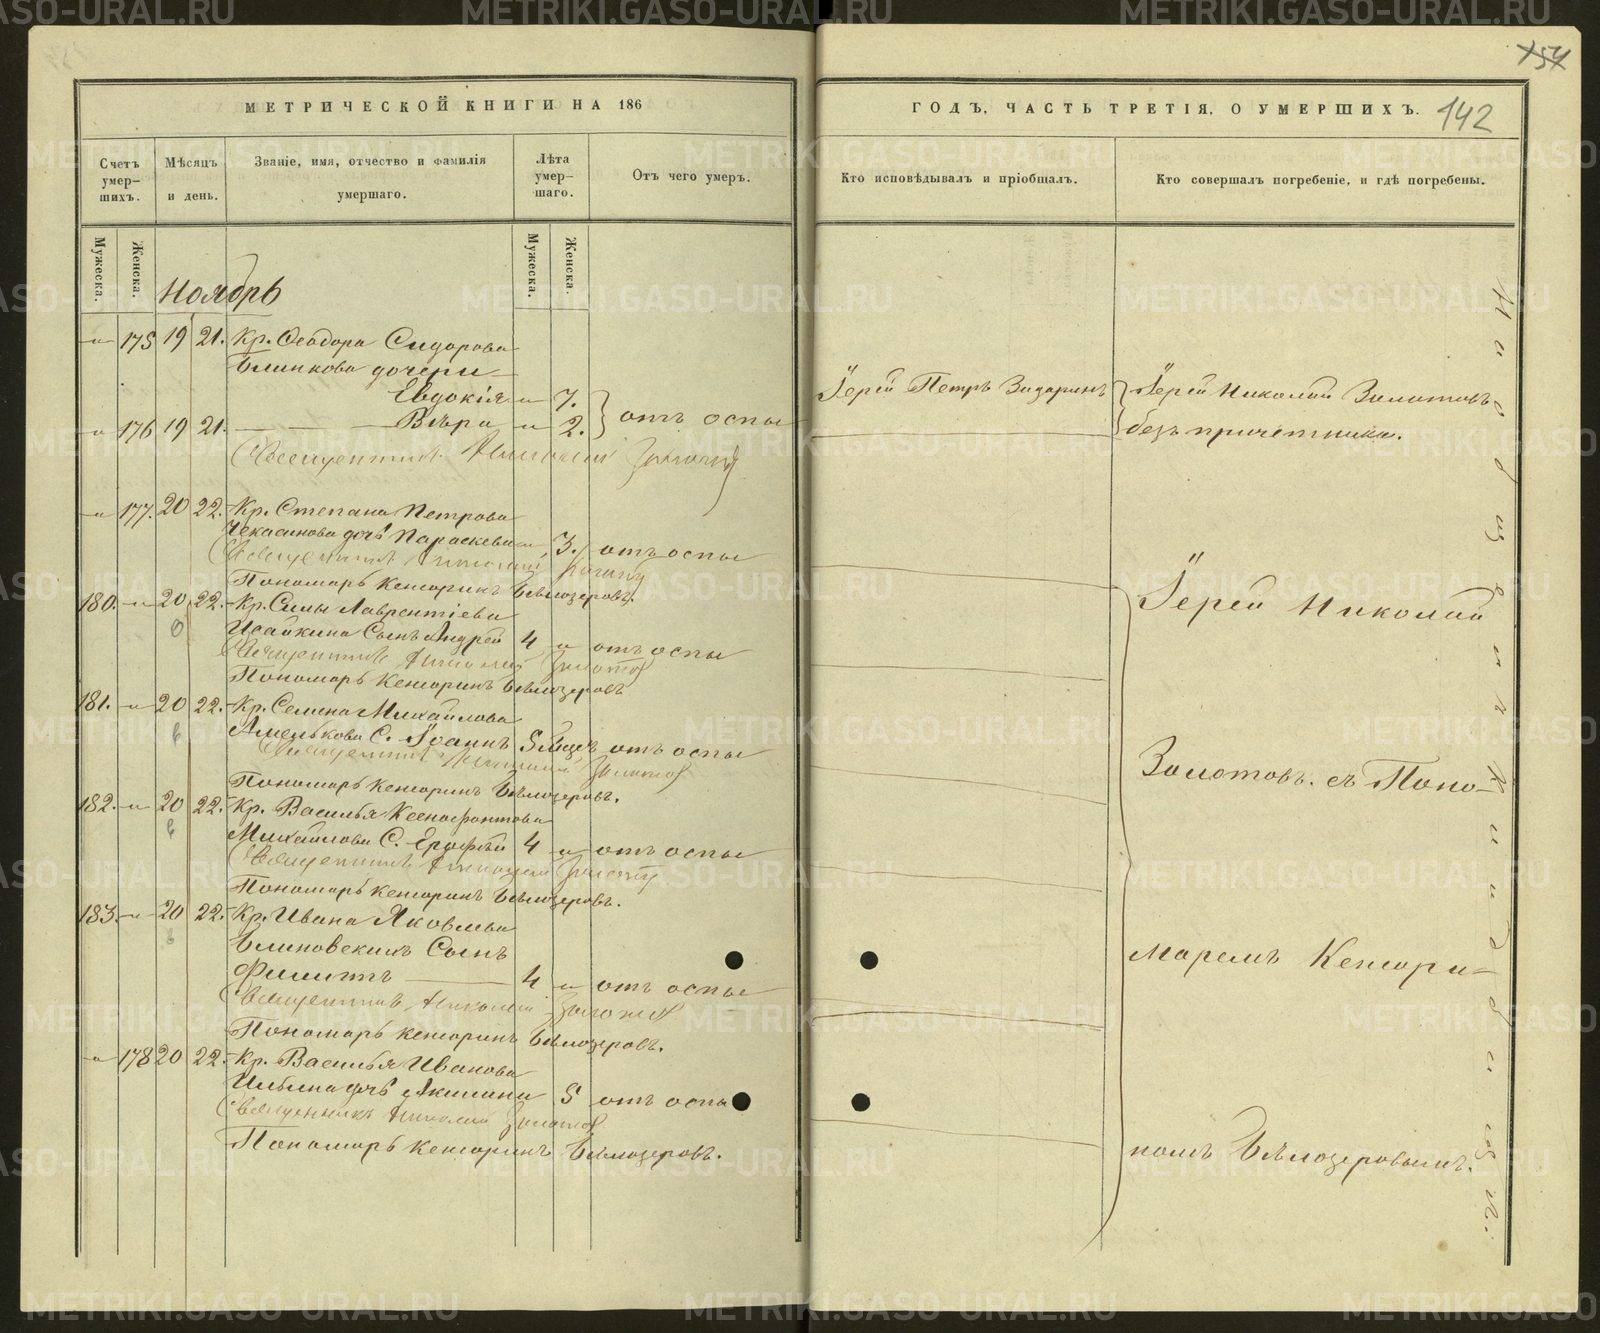 МЕТРИЧЕСКОЙ КНИГИ НА 186
ГОДЪ, ЧАСТЬ ТРЕТІЯ, О УМЕРШИХЪ.
142
154
Счетъ умер-шихъ.
Мѣсяцъ и день.
Званіе, имя, отчество и фамилія умершаго.
Лѣта умер-шаго.
Отъ чего умеръ.
Кто исповѣдывалъ и пріобщалъ.
Кто совершалъ погребеніе, и гдѣ погребены.
Мужеска.
Женска.
Мужеска.
Женска.
Ноябрь
175 19 21. Кр. Ѳеодора Сидорова
Блинкова дочери
Евдокія 7.
176 19 21. Вѣра 2. отъ оспы
Священникъ Николай Золотовъ
Іерей Петръ
Іерей Николай Золотовъ
безъ причетника.
177. 20 22. Кр. Степана Петрова
дочь Параскева 3. отъ оспы
Священникъ Николай
Пономарь Кенсоринъ Бѣлозеровъ.
180. 20 22. Кр. Силы Лаврентіева
Исайкина Сынъ Андрей 4 отъ оспы
Священникъ Николай Золотовъ
Пономарь Кенсоринъ Бѣлозеровъ
181. 20 22. Кр. Семена Михайлова
С. Іоаннъ 5 мѣсяч отъ оспы
Священникъ Николай Золотовъ
Пономарь Кенсоринъ Бѣлозеровъ.
182. 20 22. Кр. Василья Ксенофонтова
Михайлова С. Ерофѣй 4 отъ оспы
Священникъ Николай Золотовъ
Пономарь Кенсоринъ Бѣлозеровъ.
183. 20 22. Кр. Ивана Яковлева
Блиновскихъ Сынъ
Филиппъ 4 отъ оспы
Священникъ Николай Золотовъ
Пономарь Кенсоринъ Бѣлозеровъ.
178 20 22. Кр. Василья Иванова
дочь Акилина 5 отъ оспы
Священникъ Николай Золотовъ
Пономарь Кенсоринъ Бѣлозеровъ.
Іерей Николай
Золотовъ. съ Поно-
маремъ Кенсори-
номъ Бѣлозеровымъ.
METRIKI.GASO-URAL.RU